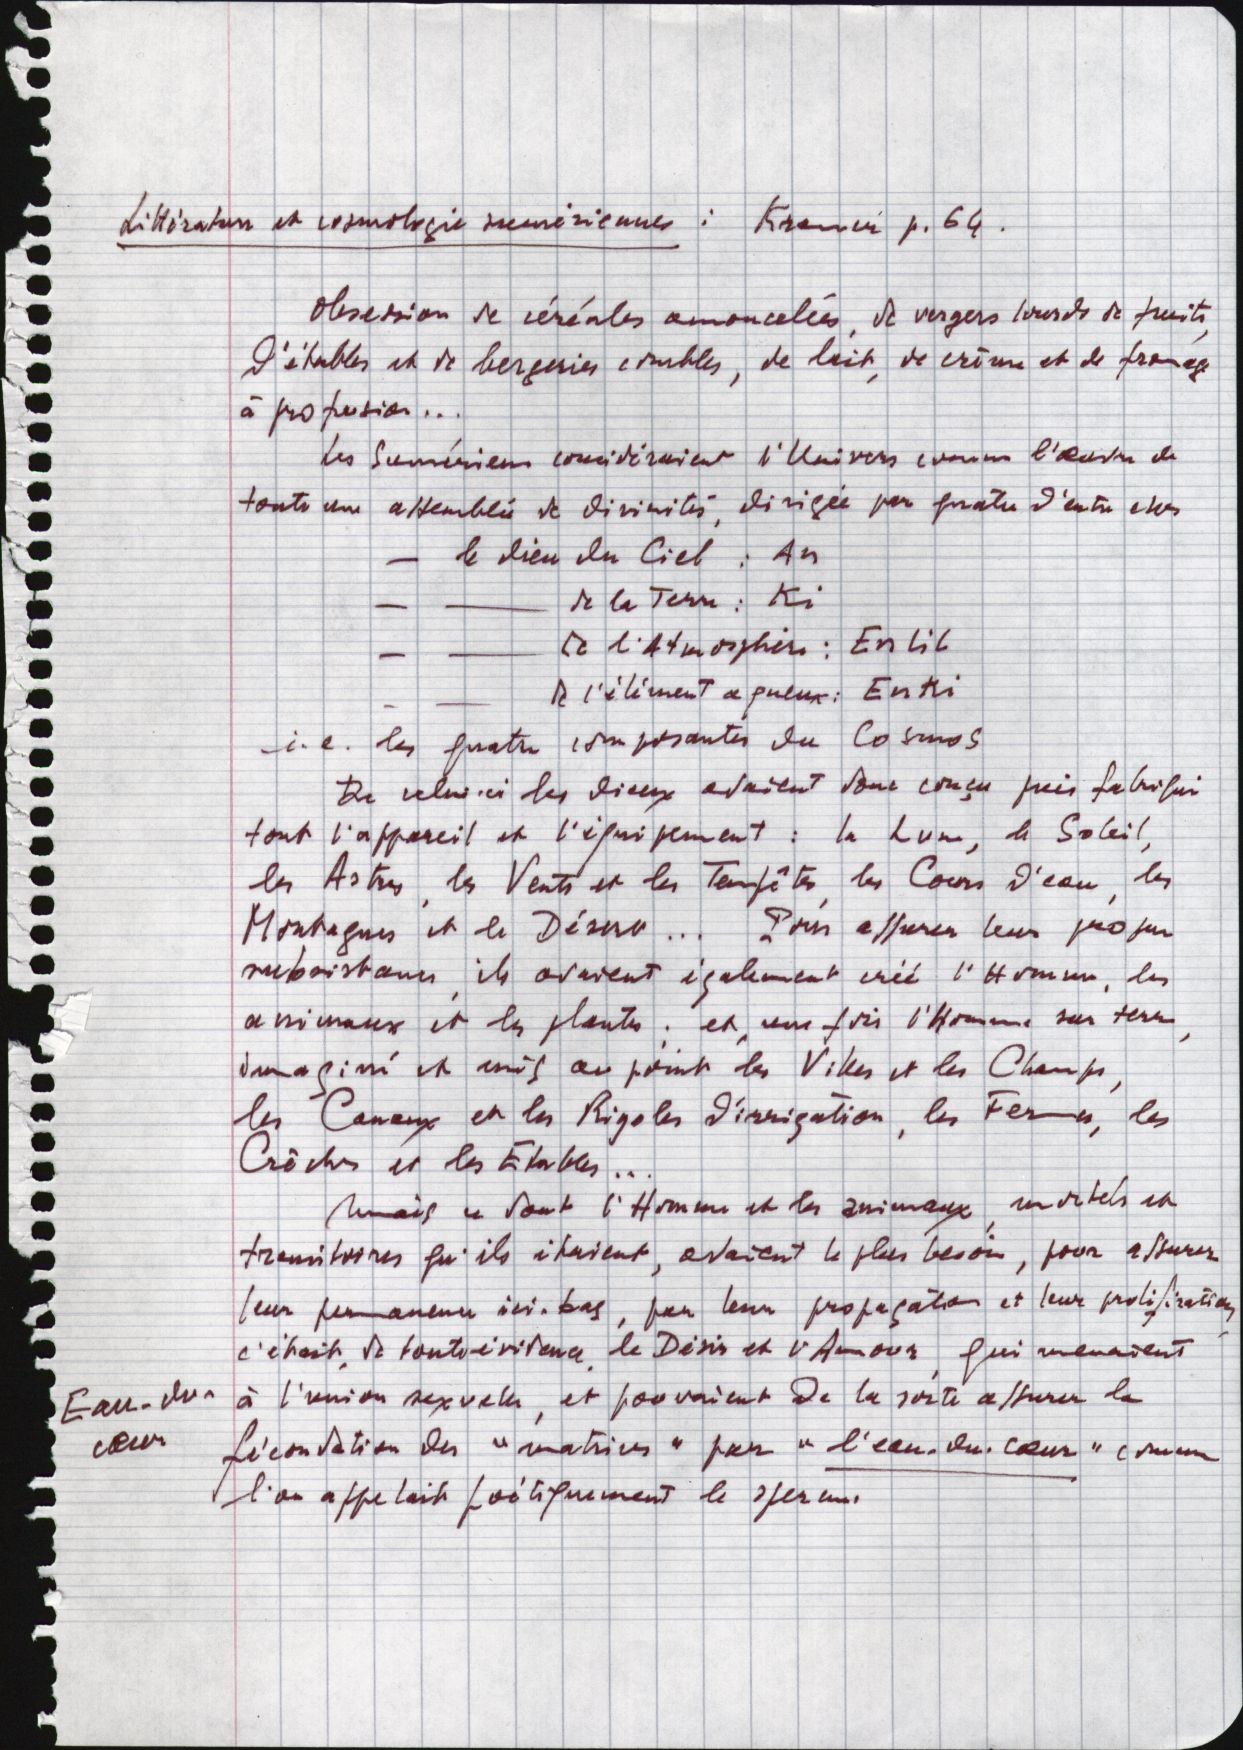 Littérature et cosmologie sumériennes : Kramer p. 64.
Obsession de céréales amoncelées, de vergers lourds de fruits,
d'étables et de bergeries combles, de lait, de crème et de fromage
à profusion...
Les Sumériens considéraient l'Univers comme l'œuvre de
toute une assemblée de divinités, dirigée par quatre d'entre elles
— le dieu du Ciel : An
— —— de la Terre : Ki
— —— de l'Atmosphère : Enlil
— —— de l'élément aqueux : Enki
i.e. les quatre composantes du Cosmos
De celui-ci les dieux avaient donc conçu puis fabriqué
tout l'appareil et l'équipement : la Lune, le Soleil,
les Astres, les Vents et les Tempêtes, les Cours d'eau, les
Montagnes et le Désert... Pour assurer leur propre
subsistance, ils avaient également créé l'Homme, les
animaux et les plantes ; et, une fois l'Homme sur terre,
imaginé et mis au point les Villes et les Champs,
les Canaux et les Rigoles d'irrigation, les Fermes, les
Crèches et les Étables...
Mais ce dont l'Homme et les animaux, mortels et
transitoires qu'ils étaient, avaient le plus besoin, pour assurer
leur permanence ici-bas, par leur propagation et leur prolifération,
c'était, de toute évidence, le Désir et l'Amour, qui menaient
à l'union sexuelle, et pouvaient de la sorte assurer la
Eau-du-
cœur
fécondation des "matrices" par "l'eau-du-cœur" comme
l'on appelait poétiquement le sperme.